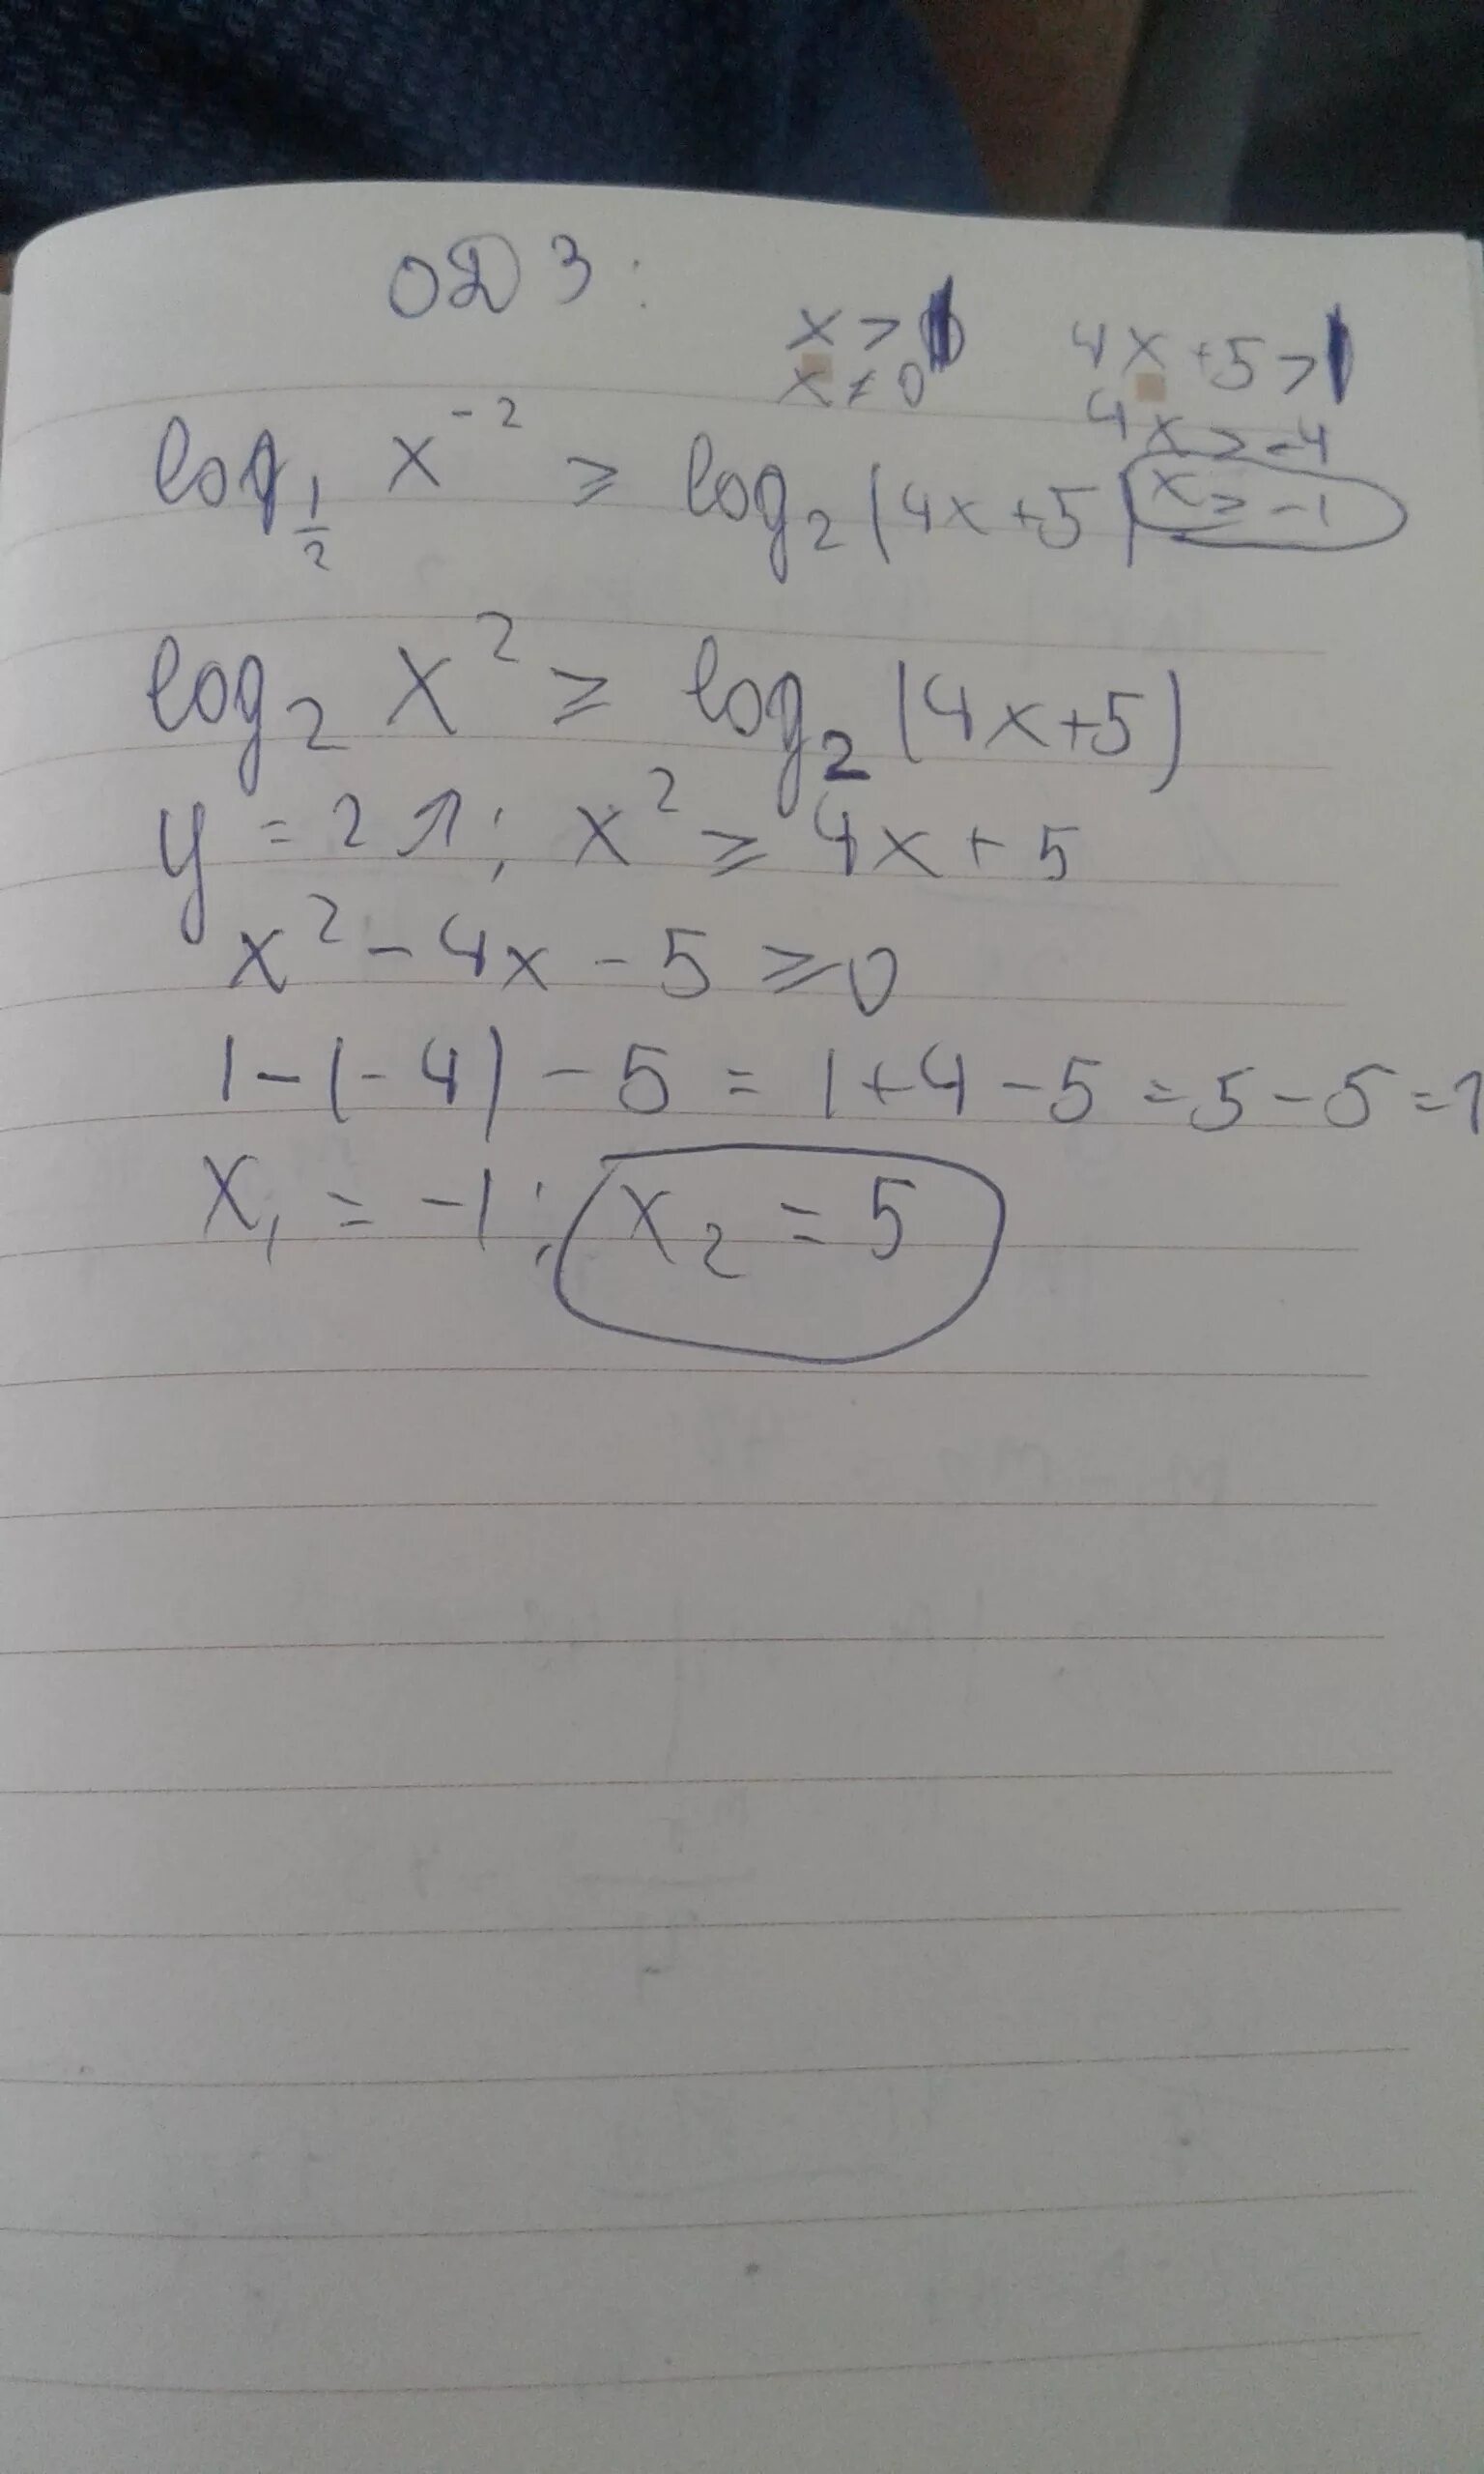 ОДЗ:
x > 4x + 5 >
x ≠ 0 4x > -4
x > -1
log_{1/2} x^{-2} ≥ log_2 (4x + 5)
log_2 x^2 ≥ log_2 (4x+5)
y = 2 ↑; x^2 ≥ 4x + 5
x^2 - 4x - 5 ≥ 0
1 - (-4) - 5 = 1 + 4 - 5 = 5 - 5 =
x_1 = -1; x_2 = 5